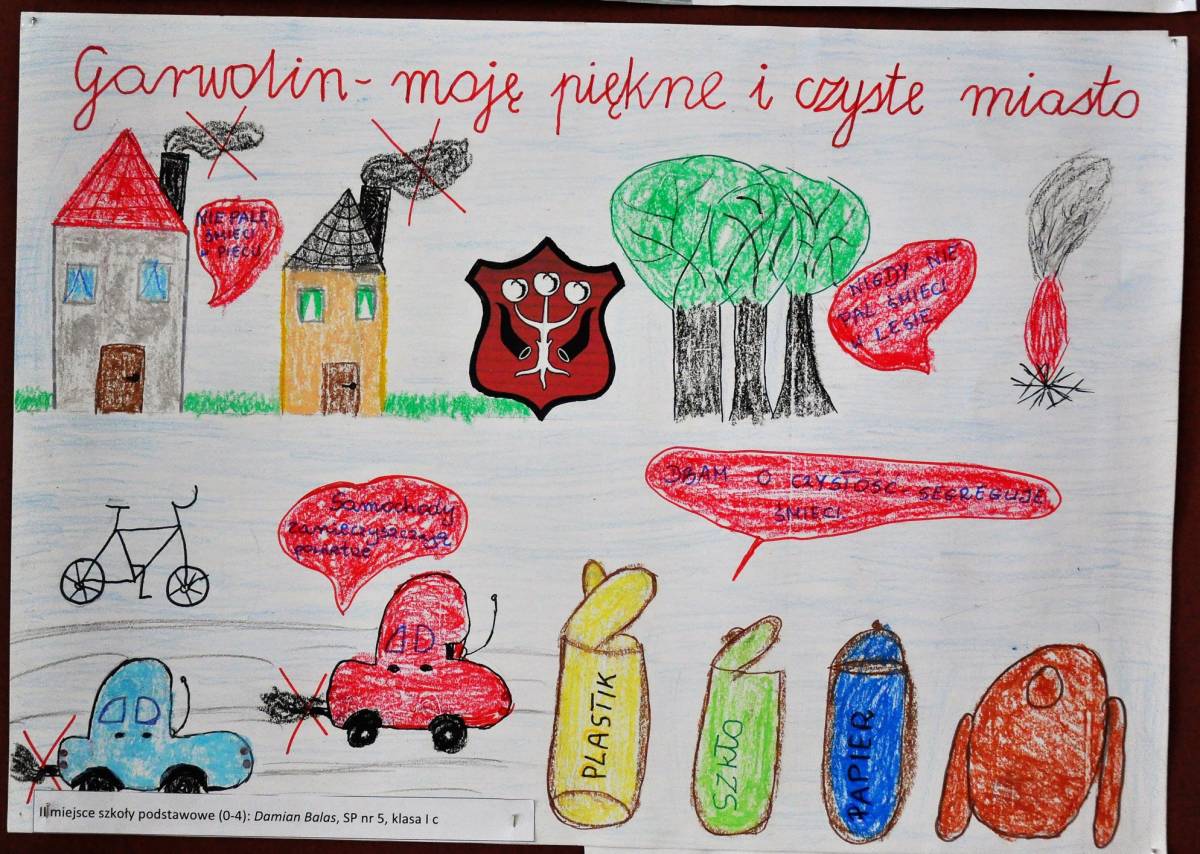 Garwolin - moję piękne i czyste miasto
NIE PALĘ
ŚMIECI
W PIECU
NIGDY NIE
PAL ŚMIECI
W LESIE
Samochody
zanieczyszczają
powietrze
DBAM O CZYSTOŚĆ-SEGREGUJĘ
ŚMIECI
PLASTIK
SZKŁO
PAPIER
II miejsce szkoły podstawowe (0-4): Damian Balas, SP nr 5, klasa I c